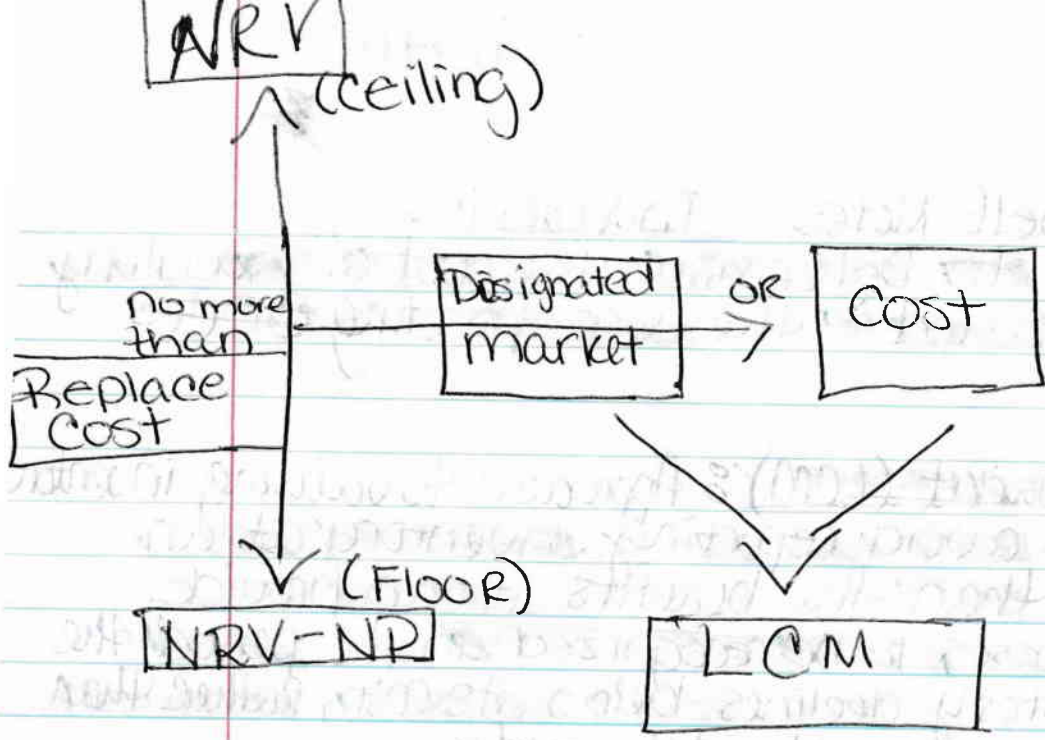 NRV
(ceiling)
no more
than
Replace
Cost
Disignated
market
OR
Cost
(FlOOR)
NRV-NP
LCM